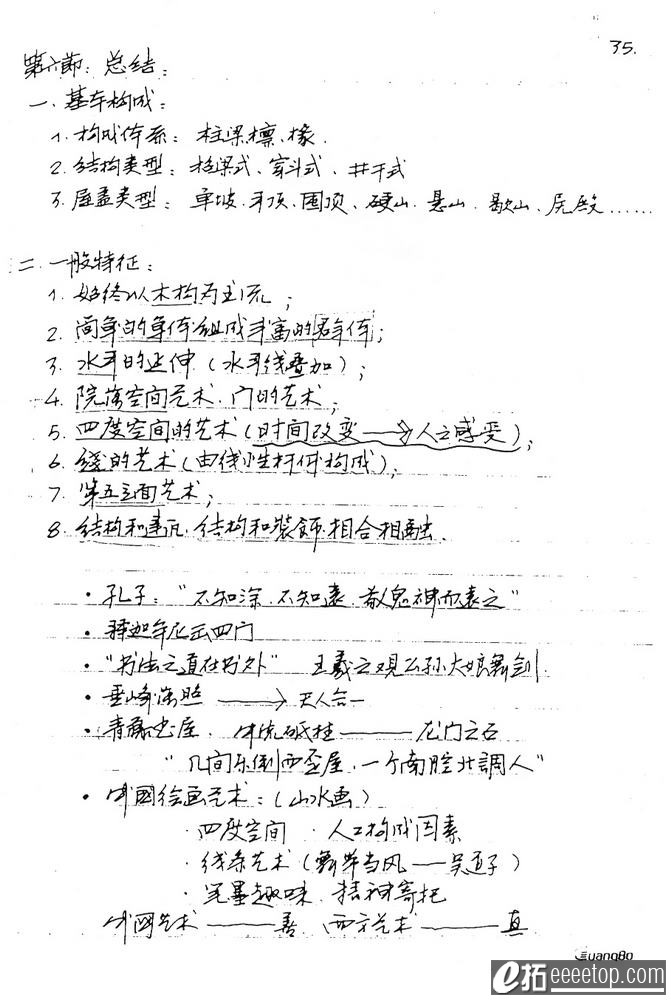 35.
第六節: 总结:
一、基本构成:
1. 构成体系: 柱梁檩、椽.
2. 结构类型: 抬梁式、穿斗式、井干式
3. 屋盖类型: 单坡、平顶、囤顶、硬山、悬山、歇山、庑殿......
二. 一般特征:
1. 始终以木构为主流;
2. 简单的单体组成丰富的群体;
3. 水平的延伸 (水平线叠加);
4. 院落空间艺术、门的艺术;
5. 四度空间的艺术 (时间改变 → 人之感受);
6. 线的艺术 (由线性杆件构成);
7. 第五立面艺术;
8. 结构和、结构和装飾相合相融.
• 孔子: "不知 不知 鬼神而之"
• 释迦牟尼 四门
• "书法之道在书外" 王羲之观公孙大娘舞剑.
• 峰 照 → 天人合一
• 青 屋、中流砥柱 —— 龙门之石
"几间东倒西歪屋、一个南腔北調人"
• 中國绘画艺术: (山水画)
· 四度空间 · 人工构成因素
· 线条艺术 (当风 — 吴道子)
· 笔墨趣味、精神寄托
中國艺术 —— 善、西方艺术 —— 真
GuangBo
e拓 eeeetop.com